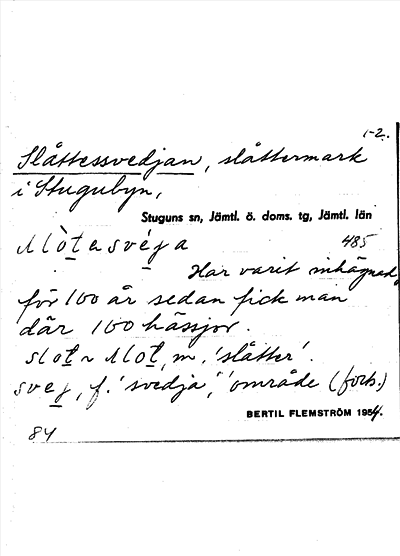 1-2.
Slåttessvedjan, slåttermark
i Stugubyn,
Stuguns sn, Jämtl. ö. doms. tg, Jämtl. län
485
Har varit inhägnad,
för 100 år sedan fick man
där 100 hässjor.
m, 'slåtter'.
f. 'svedja', 'område (forb.)
BERTIL FLEMSTRÖM 1954.
84